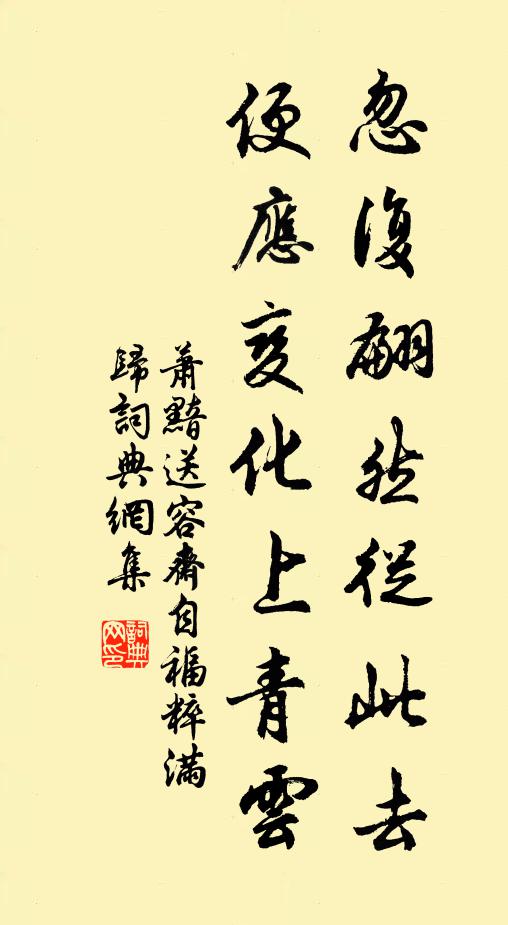 忽復翩然從此去
便應變化上青雲
蕭黯送容齋自福粹滿
歸詞典網集
詞典网印